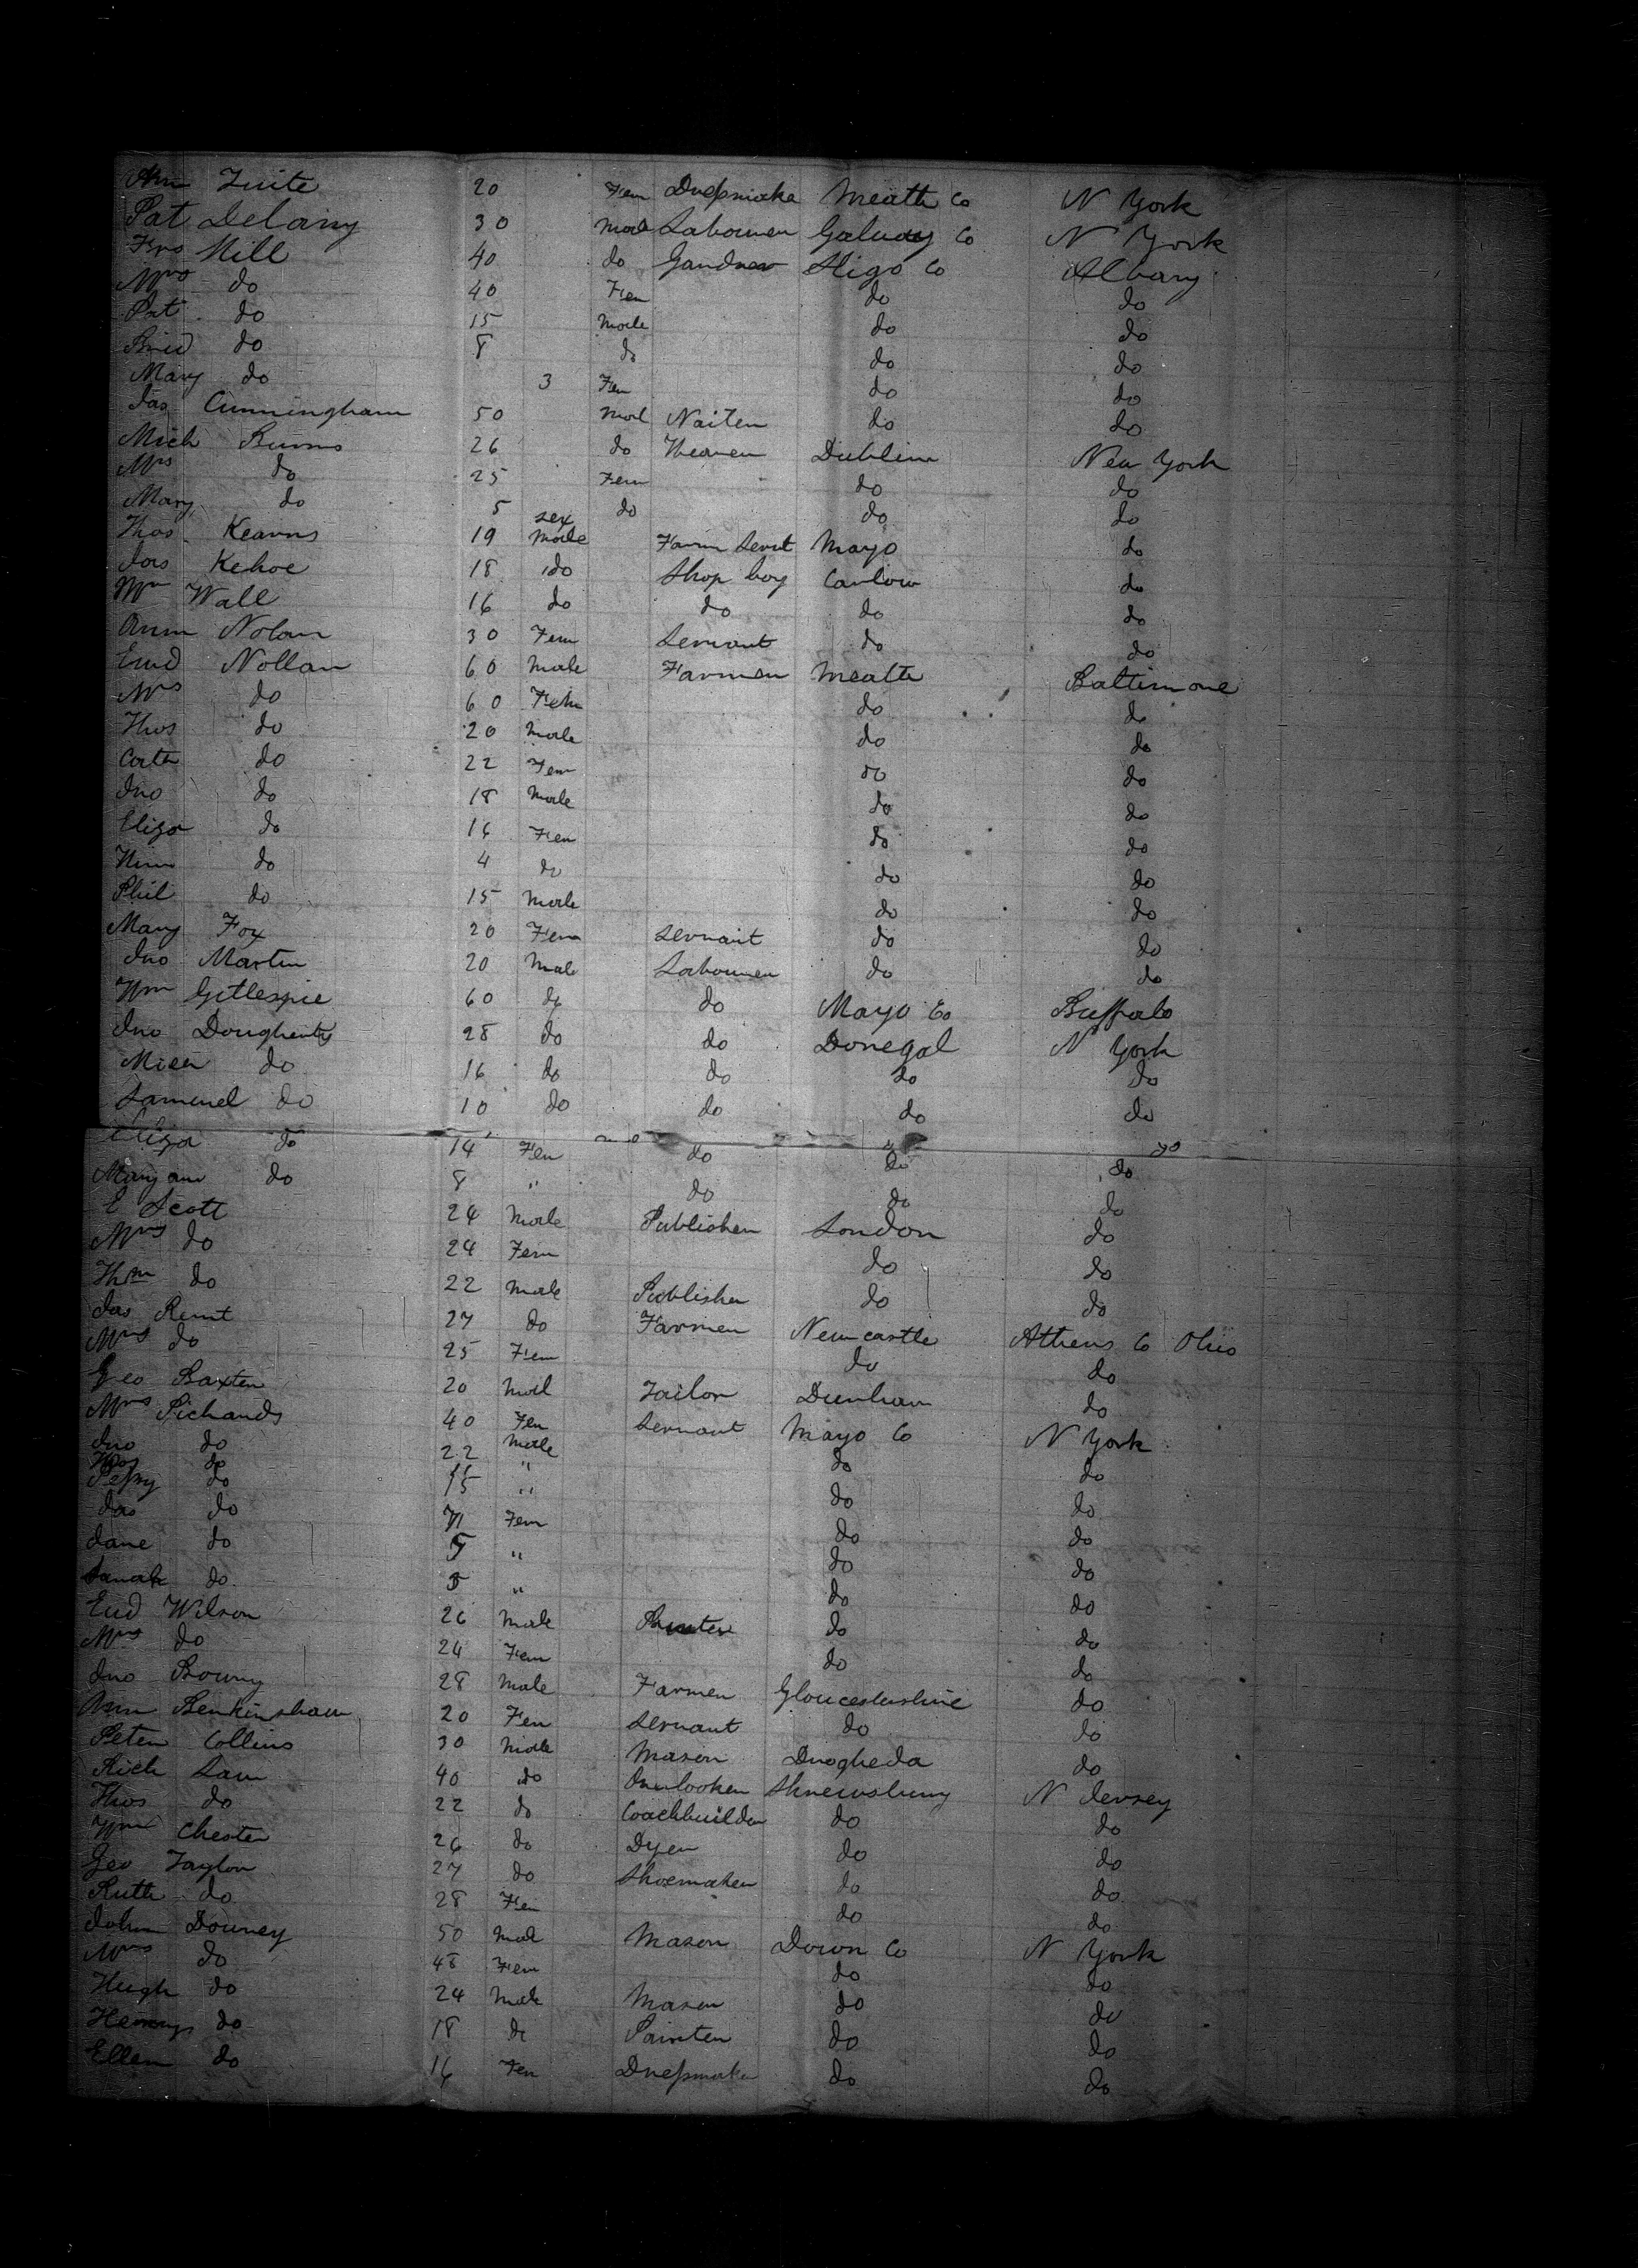 Ann Tuite 20 Fem Dressmaker Meath Co N York
Pat Delany 30 Male Labourer Galway Co N York
Hill 40 do Gardner Sligo Co Albany
Mrs do 40 Fem do do
Pat do 15 Male do do
do 8 do do do
Mary do 3 Fem do do
Jas Cunningham 50 Mal do do
Mich Burns 26 do Dublin New York
Mrs do 25 Fem do do
Mary do 5 do do do
sex
Thos Kearns 19 Male Farm Servt Mayo do
Jas Kehoe 18 do Shop boy Carlow do
Wm Wall 16 do do do do
Ann Nolan 30 Fem Servant do do
Nollan 60 Male Farmer Meath Baltimore
Mrs do 60 Fem do do
Thos do 20 Male do do
Cath do 22 Fem do do
Jno do 18 Male do do
Eliza do 16 Fem do do
do 4 do do do
Phil do 15 Male do do
Mary Fox 20 Fem Servant do do
Jno Martin 20 Male Labourer do do
Wm Gillespie 60 do do Mayo Co Buffalo
Jno Dougherty 28 do do Donegal N York
do 16 do do do do
Samuel do 10 do do do do
Eliza do 14 Fem do do do
Mary ann do 8 " do do do
E Scott 24 Male Publisher London do
Mrs do 24 Fem do do
do 22 Male Publisher do do
Jas 27 do Farmer Newcastle Athens Co Ohio
Mrs do 25 Fem do do
Geo Baxter 20 Mal Tailor Durham do
Mrs Richards 40 Fem Servant Mayo Co N York
Jno do 22 Male do do
do "
do 15 " do do
Jas do Fem do do
Jane do " do do
Sarah do " do do
Wilson 26 Male do do
Mrs do 24 Fem do do
Jno 28 Male Farmer Gloucestershire do
Ann Benkinshaw 20 Fem Servant do do
Peter Collins 30 Male Mason Drogheda do
Rich 40 do Overlooker Shrewsbury N Jersey
Thos do 22 do Coachbuilder do do
Wm Chester 26 do Dyer do do
Geo Taylor 27 do Shoemaker do do
Ruth do 28 Fem do do
John Downey 50 Mal Mason Down Co N York
Mrs do 48 Fem do do
Hugh do 24 Male Mason do do
Henry do 18 do Painter do do
Ellen do 16 Fem Dressmaker do do